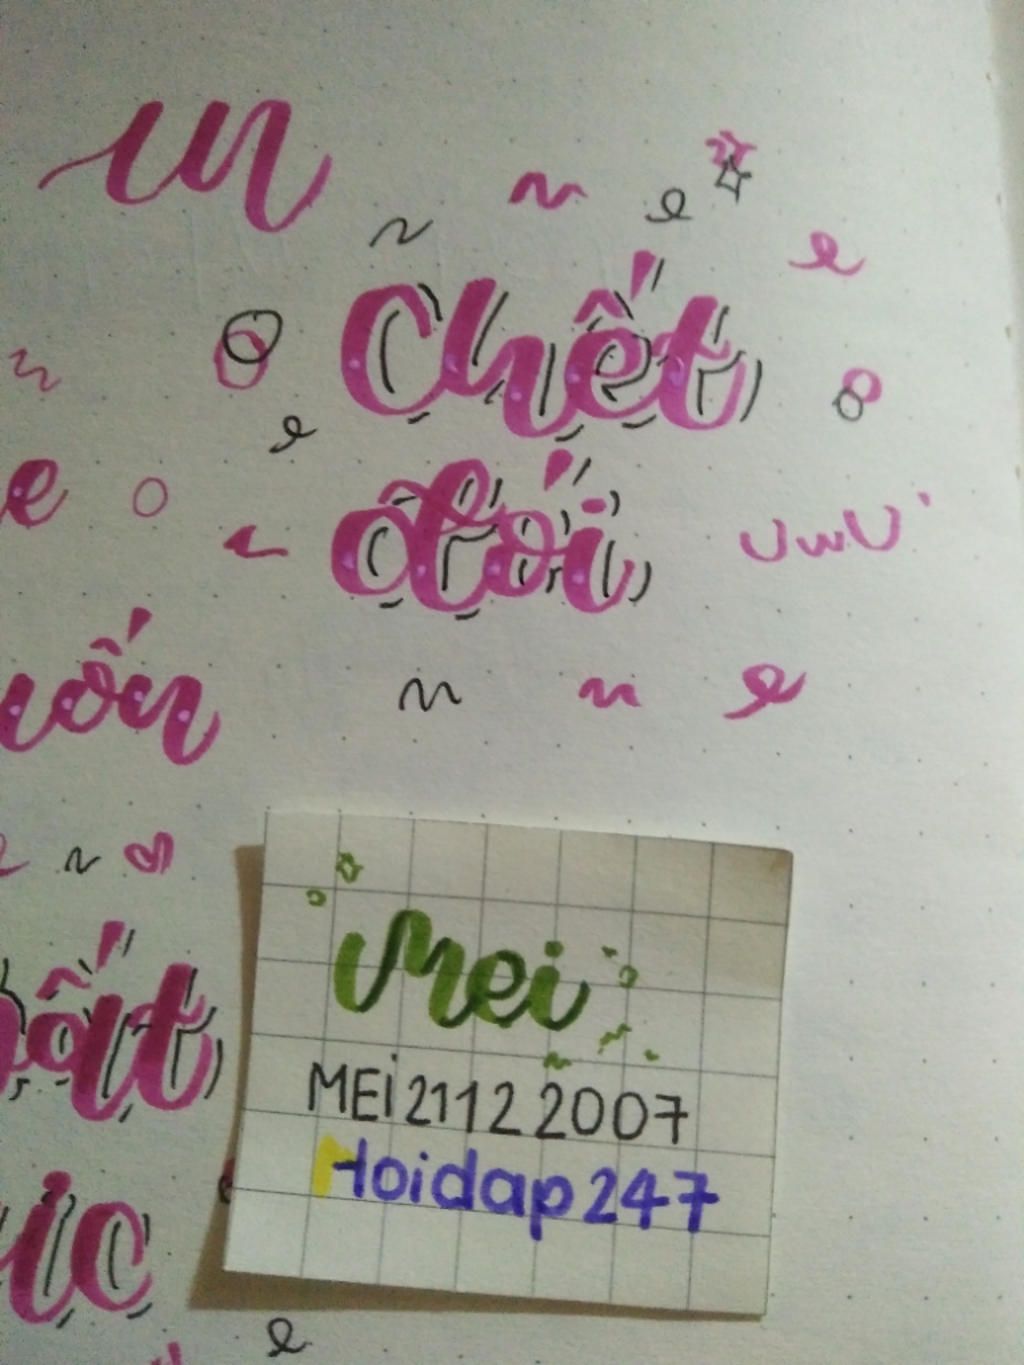 un
Chết
e
đói
UwU
uốn
ất
Mei
MEi21122007
Hoidap247
ic